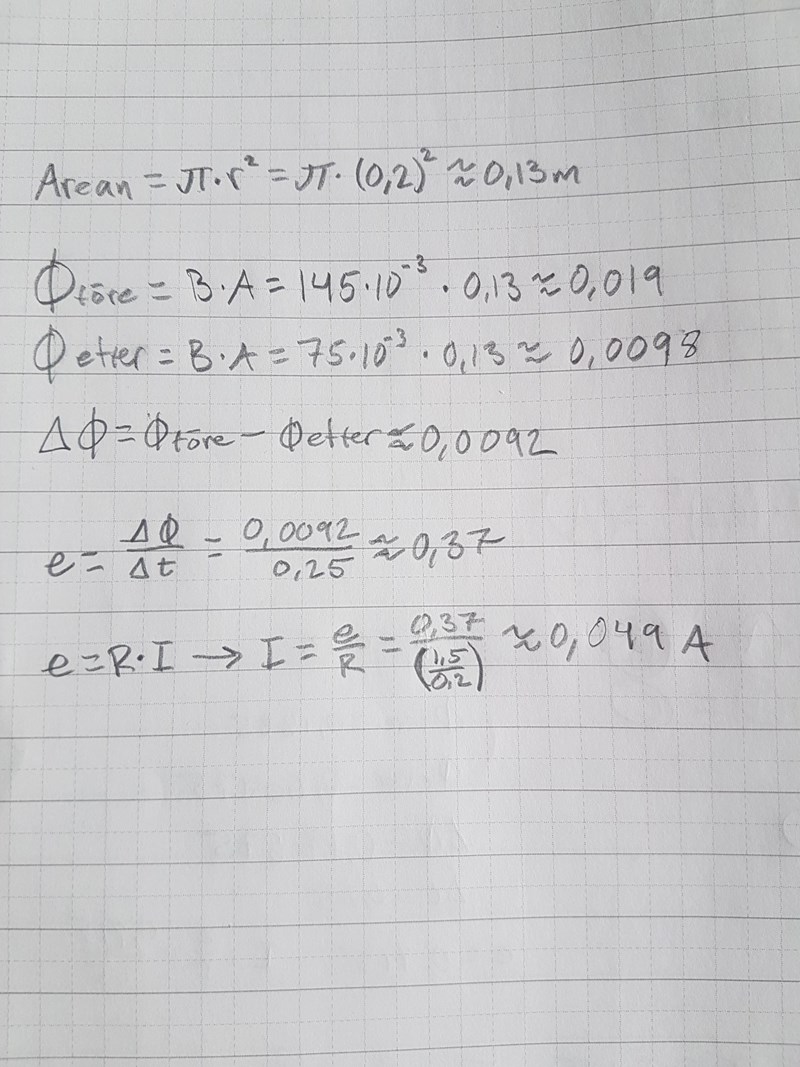 Arean = π·r² = π·(0,2)² ≈ 0,13m
Φföre = B·A = 145·10⁻³ · 0,13 ≈ 0,019
Φefter = B·A = 75·10⁻³ · 0,13 ≈ 0,0098
ΔΦ = Φföre − Φefter ≈ 0,0092
e = ΔΦ/Δt = 0,0092/0,25 ≈ 0,37
e = R·I → I = e/R = 0,37/(1,5/0,2) ≈ 0,049 A